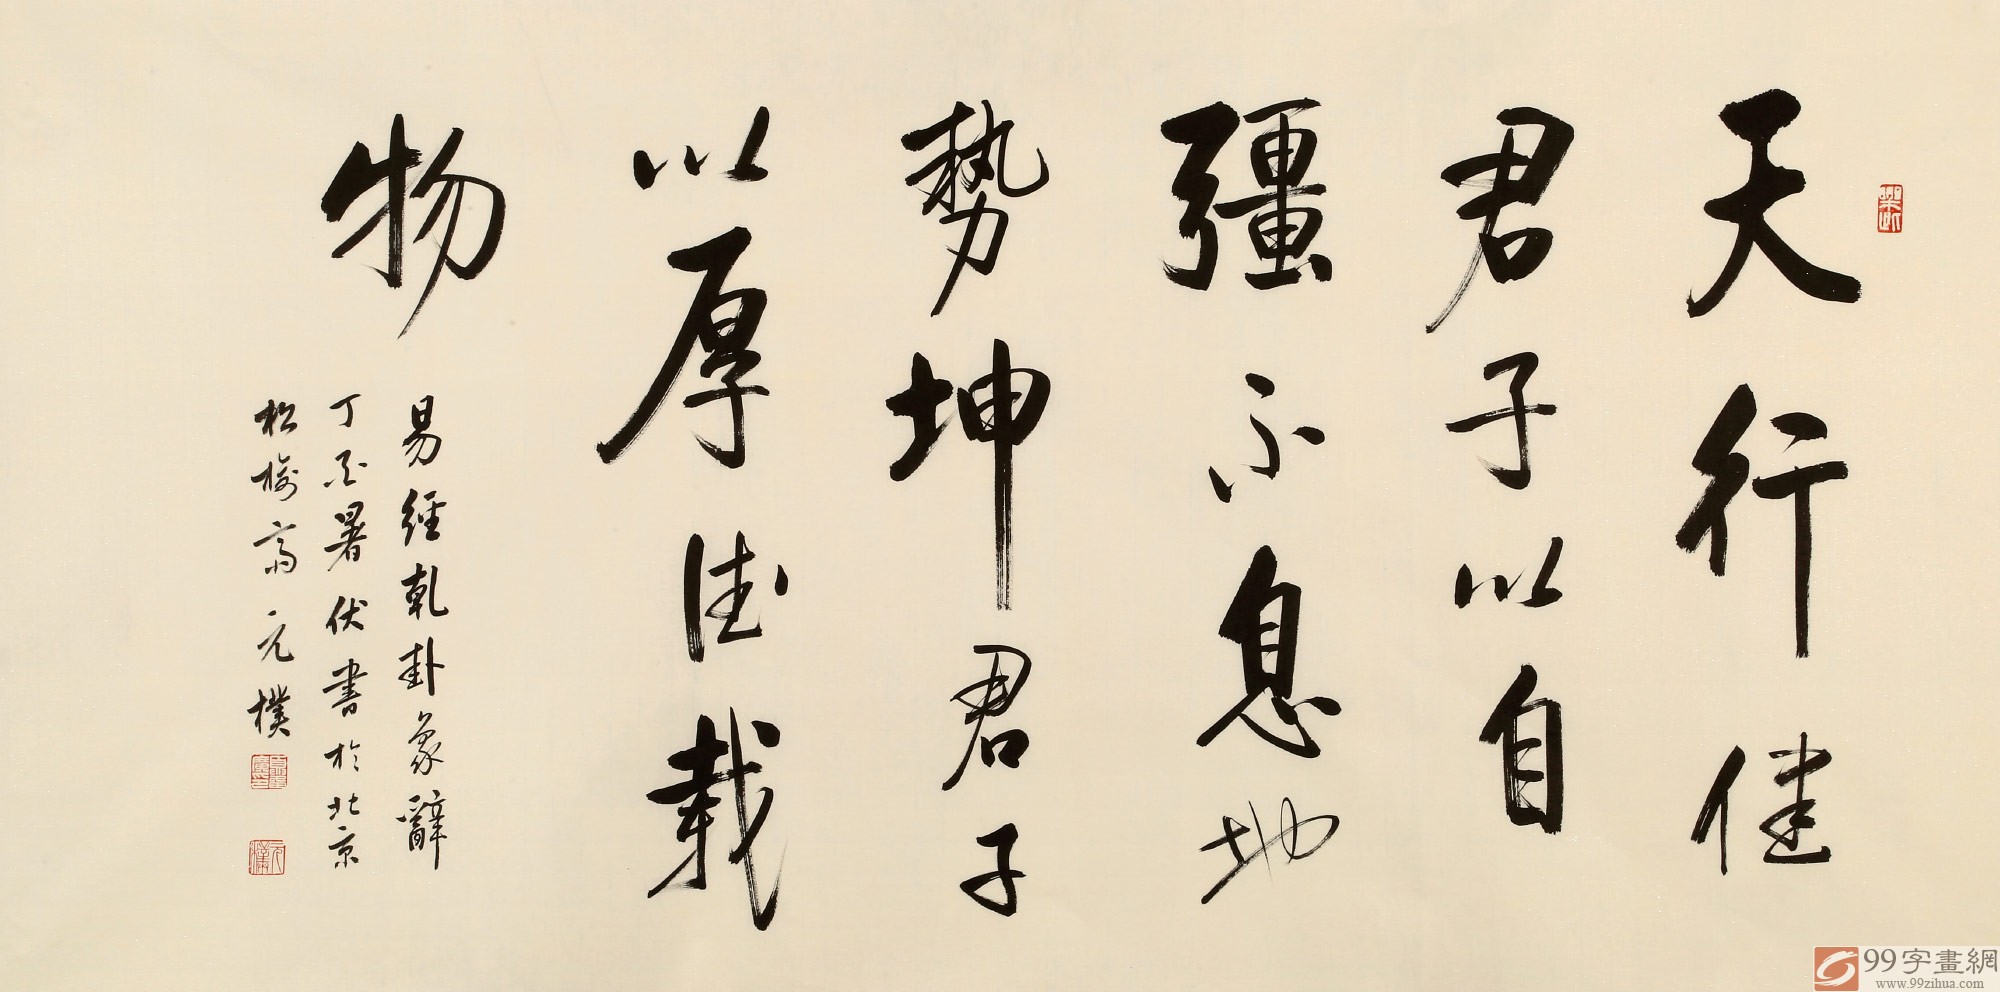 天行健
君子以自
彊不息地
勢坤君子
以厚德載
物
易經乾卦象辭
丁酉暑伏書於北京
松梅齋元樸
99字畫網
www.99zihua.com